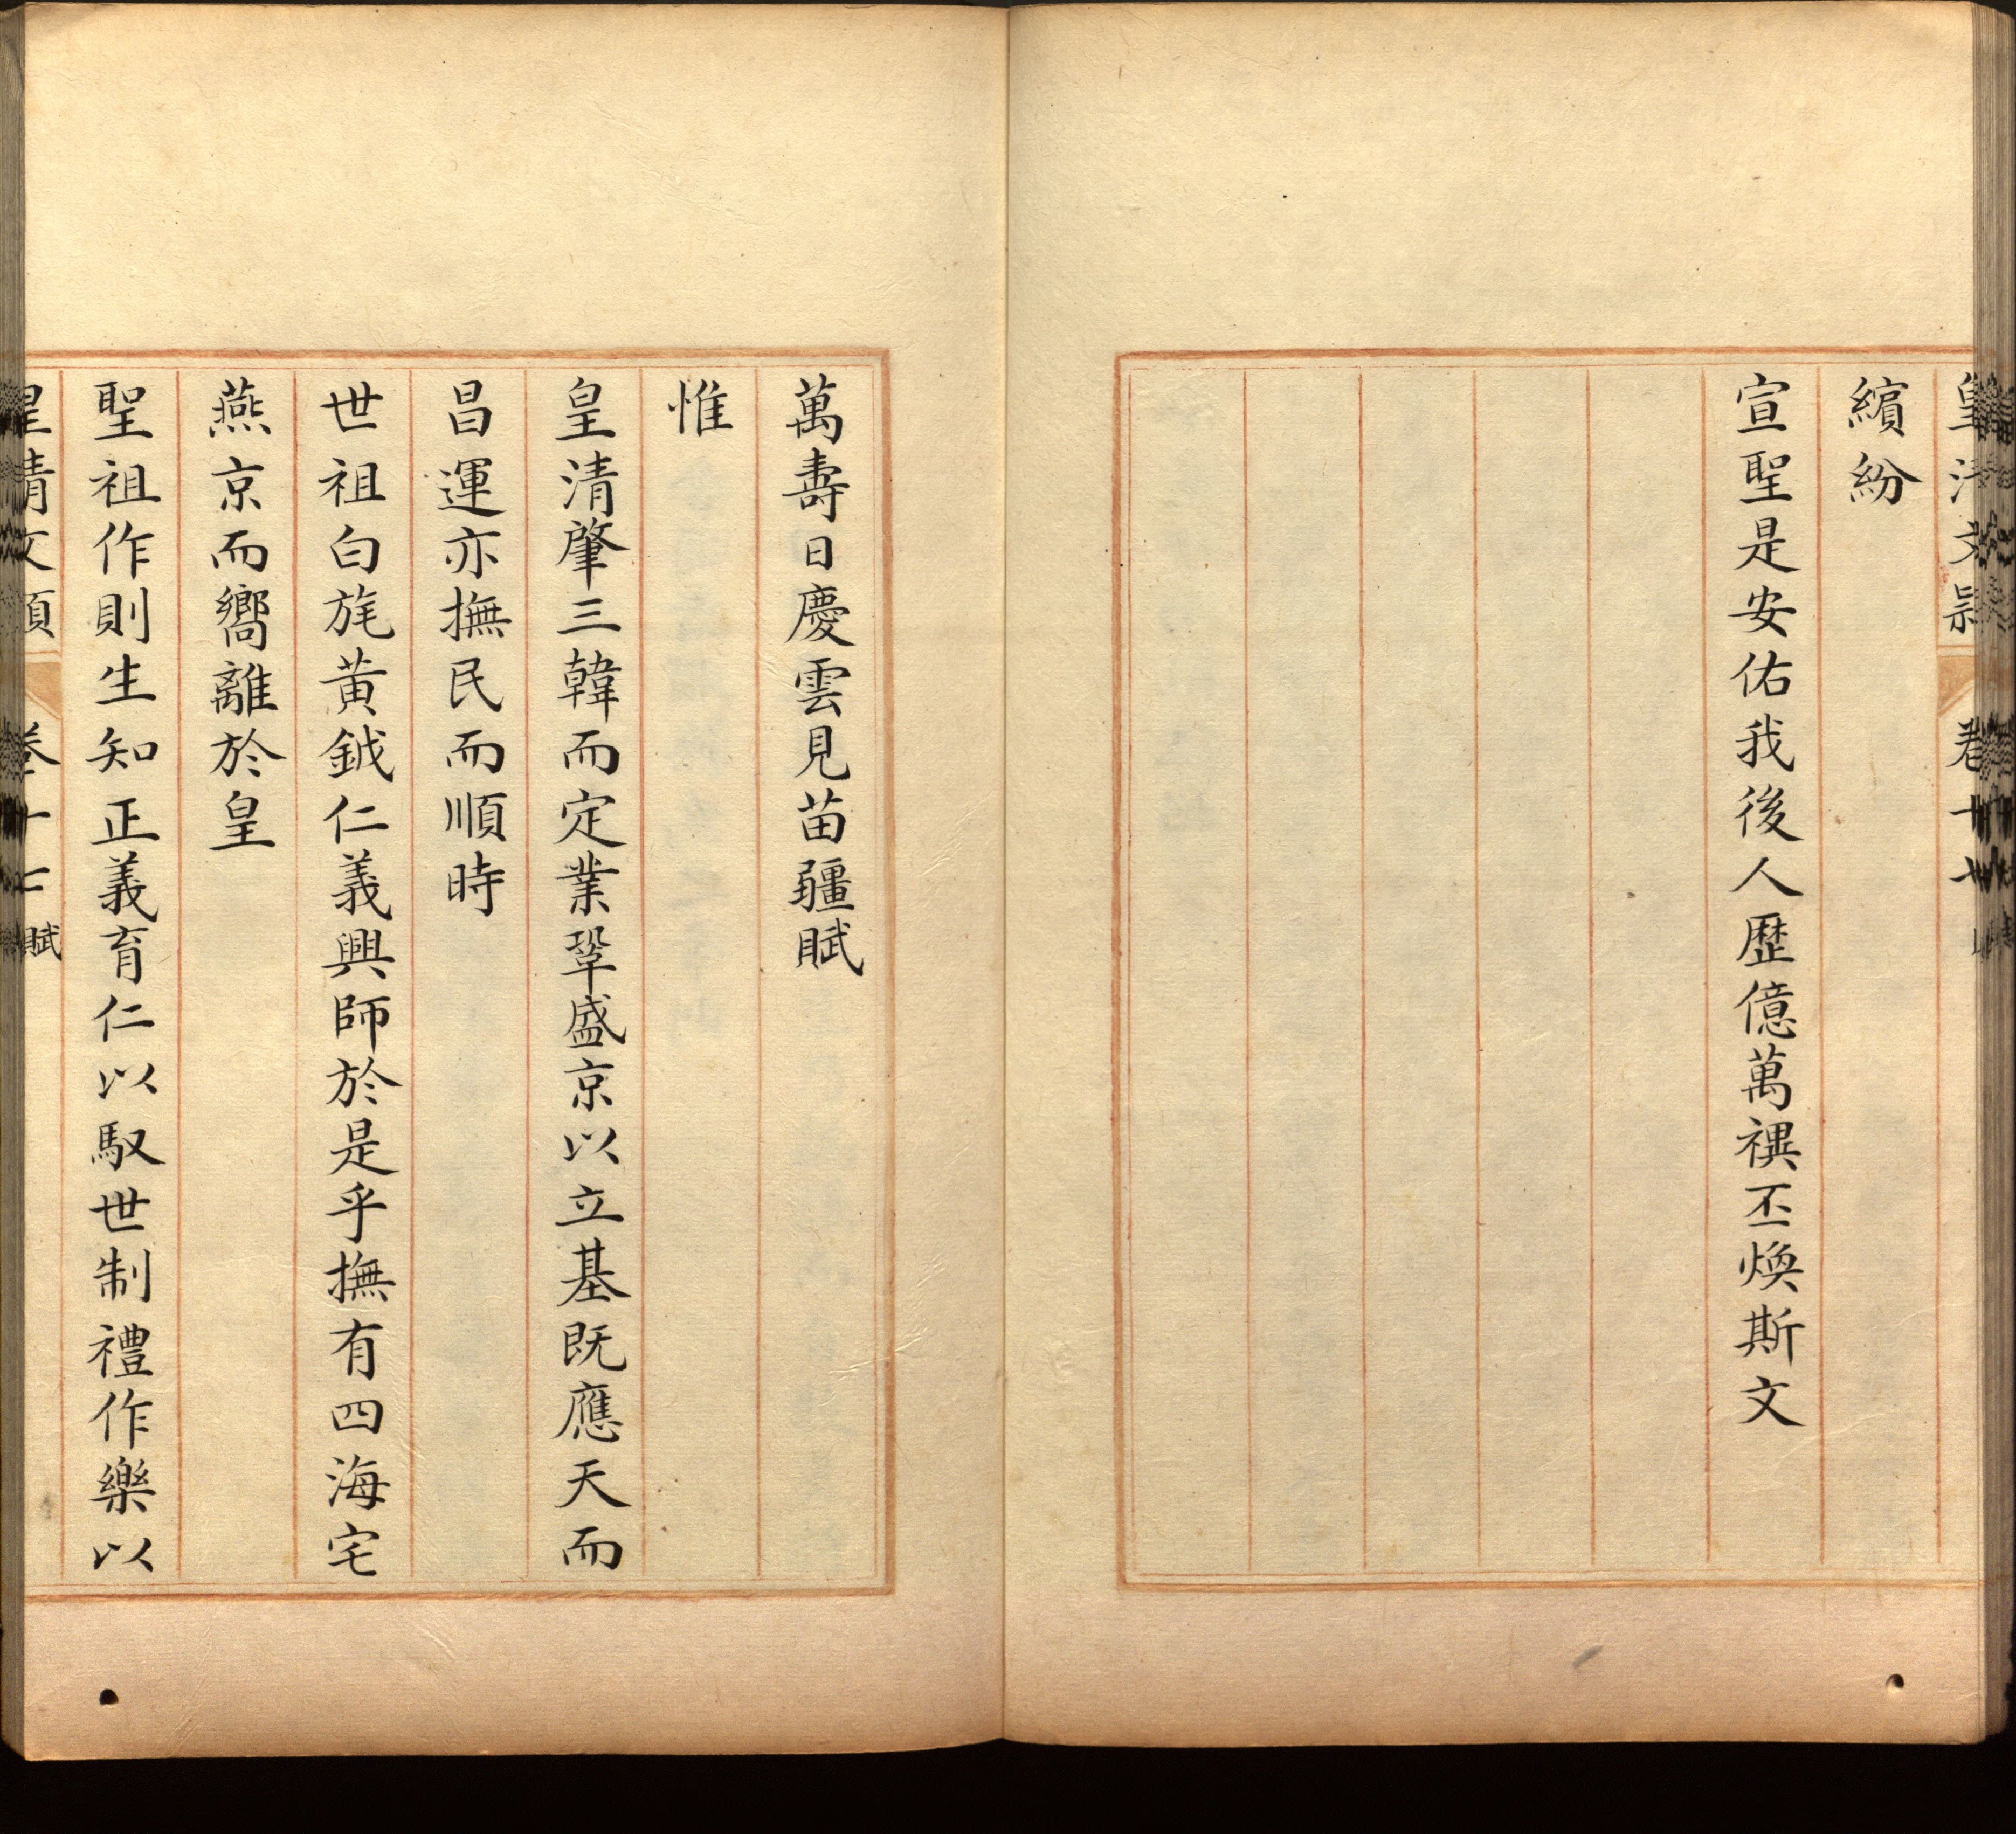 皇清文穎 卷十七
繽紛
宣聖是安佑我後人歷億萬禩丕煥斯文
萬壽日慶雲見苗疆賦
惟
皇清肇三韓而定業鞏盛京以立基既應天而
昌運亦撫民而順時
世祖白旄黃鉞仁義興師於是乎撫有四海宅
燕京而嚮離於皇
聖祖作則生知正義育仁以馭世制禮作樂以
皇清文穎 卷十七 賦